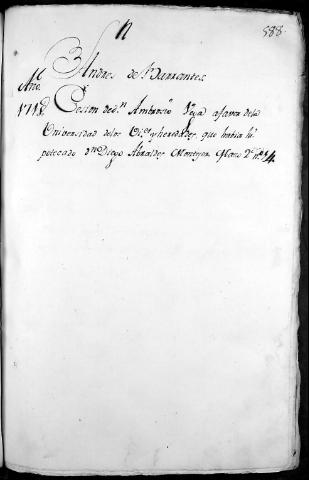 588
Andres de Barrantes
Año
1718. Cesion de dn. Ambrosio Vega afavor dela
Universidad delos y herederos, que havia hi
potecado dn Diego Abraldes Montijon Mano 2a no. 14.